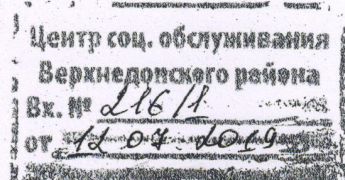 Центр соц. обслуживания
Верхнедонского района
Вх. № 216/1
от 12 07 2019